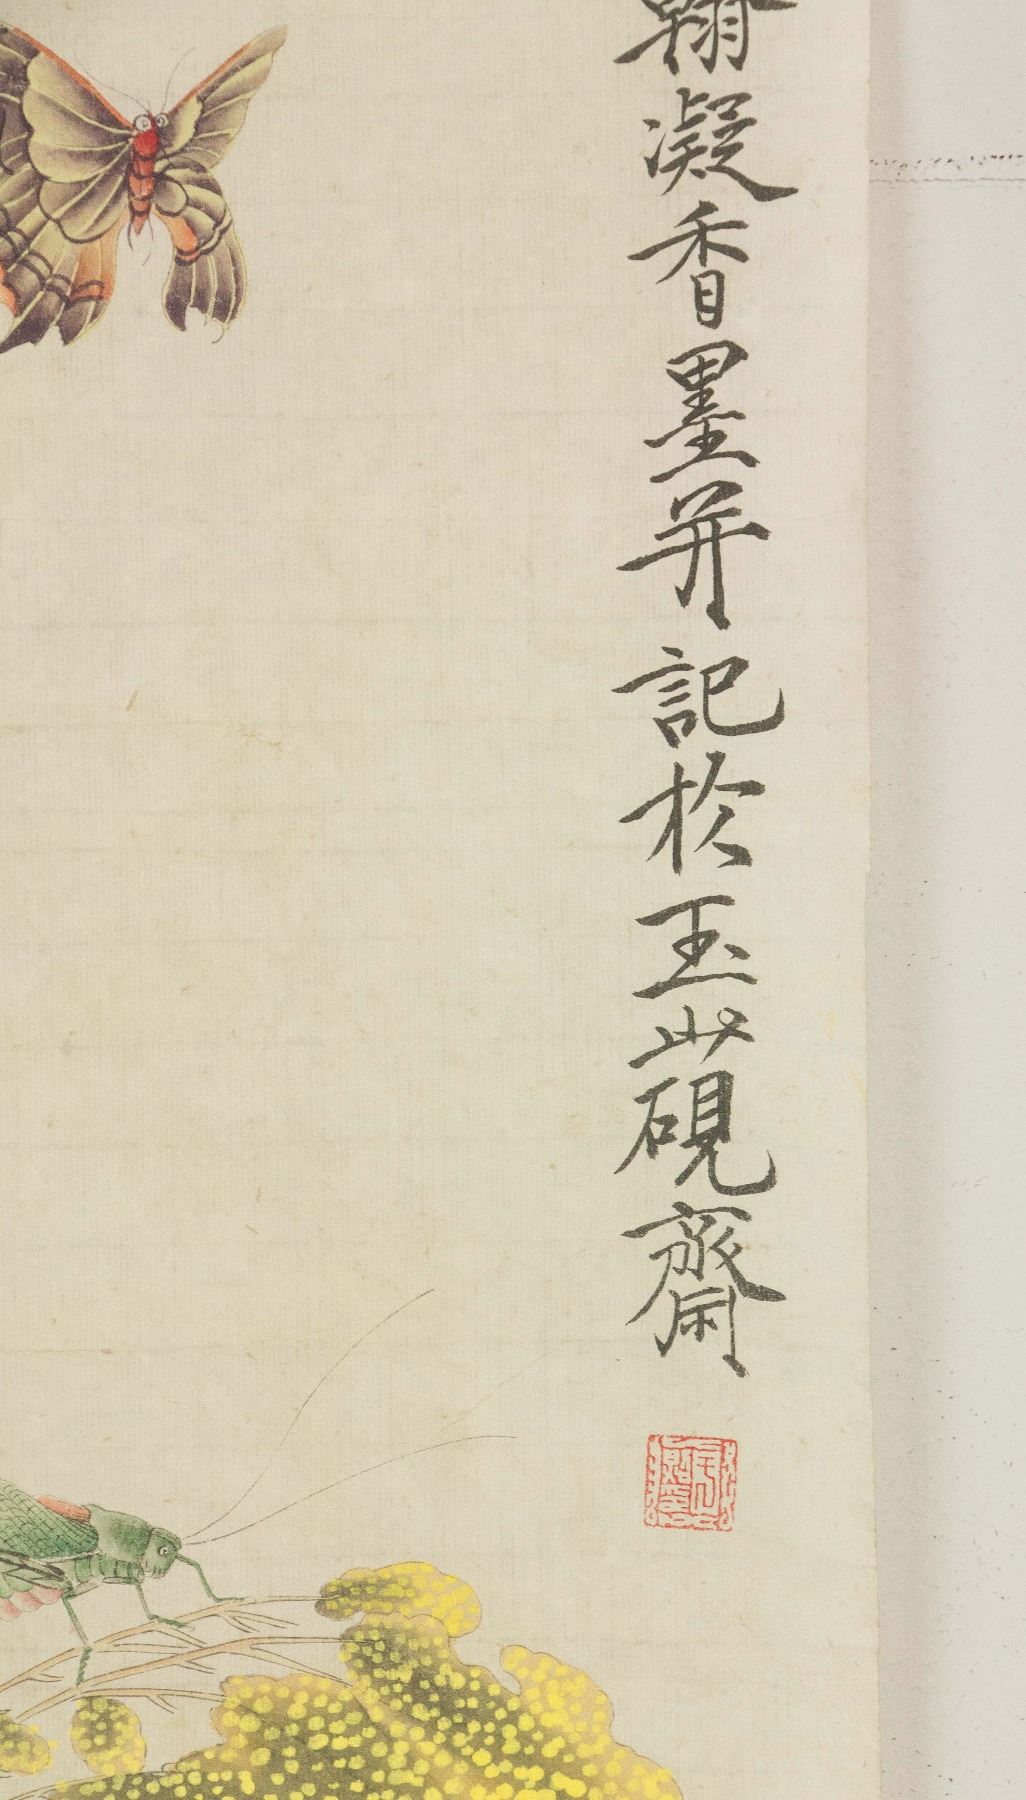 翰凝香墨并記於玉山硯齋